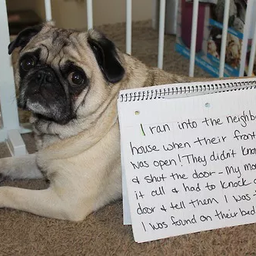 I ran into the neighb
house when their front
was open! They didn't kno
& shut the door - My mo
it all & had to knock
door & tell them I was
I was found on their bed